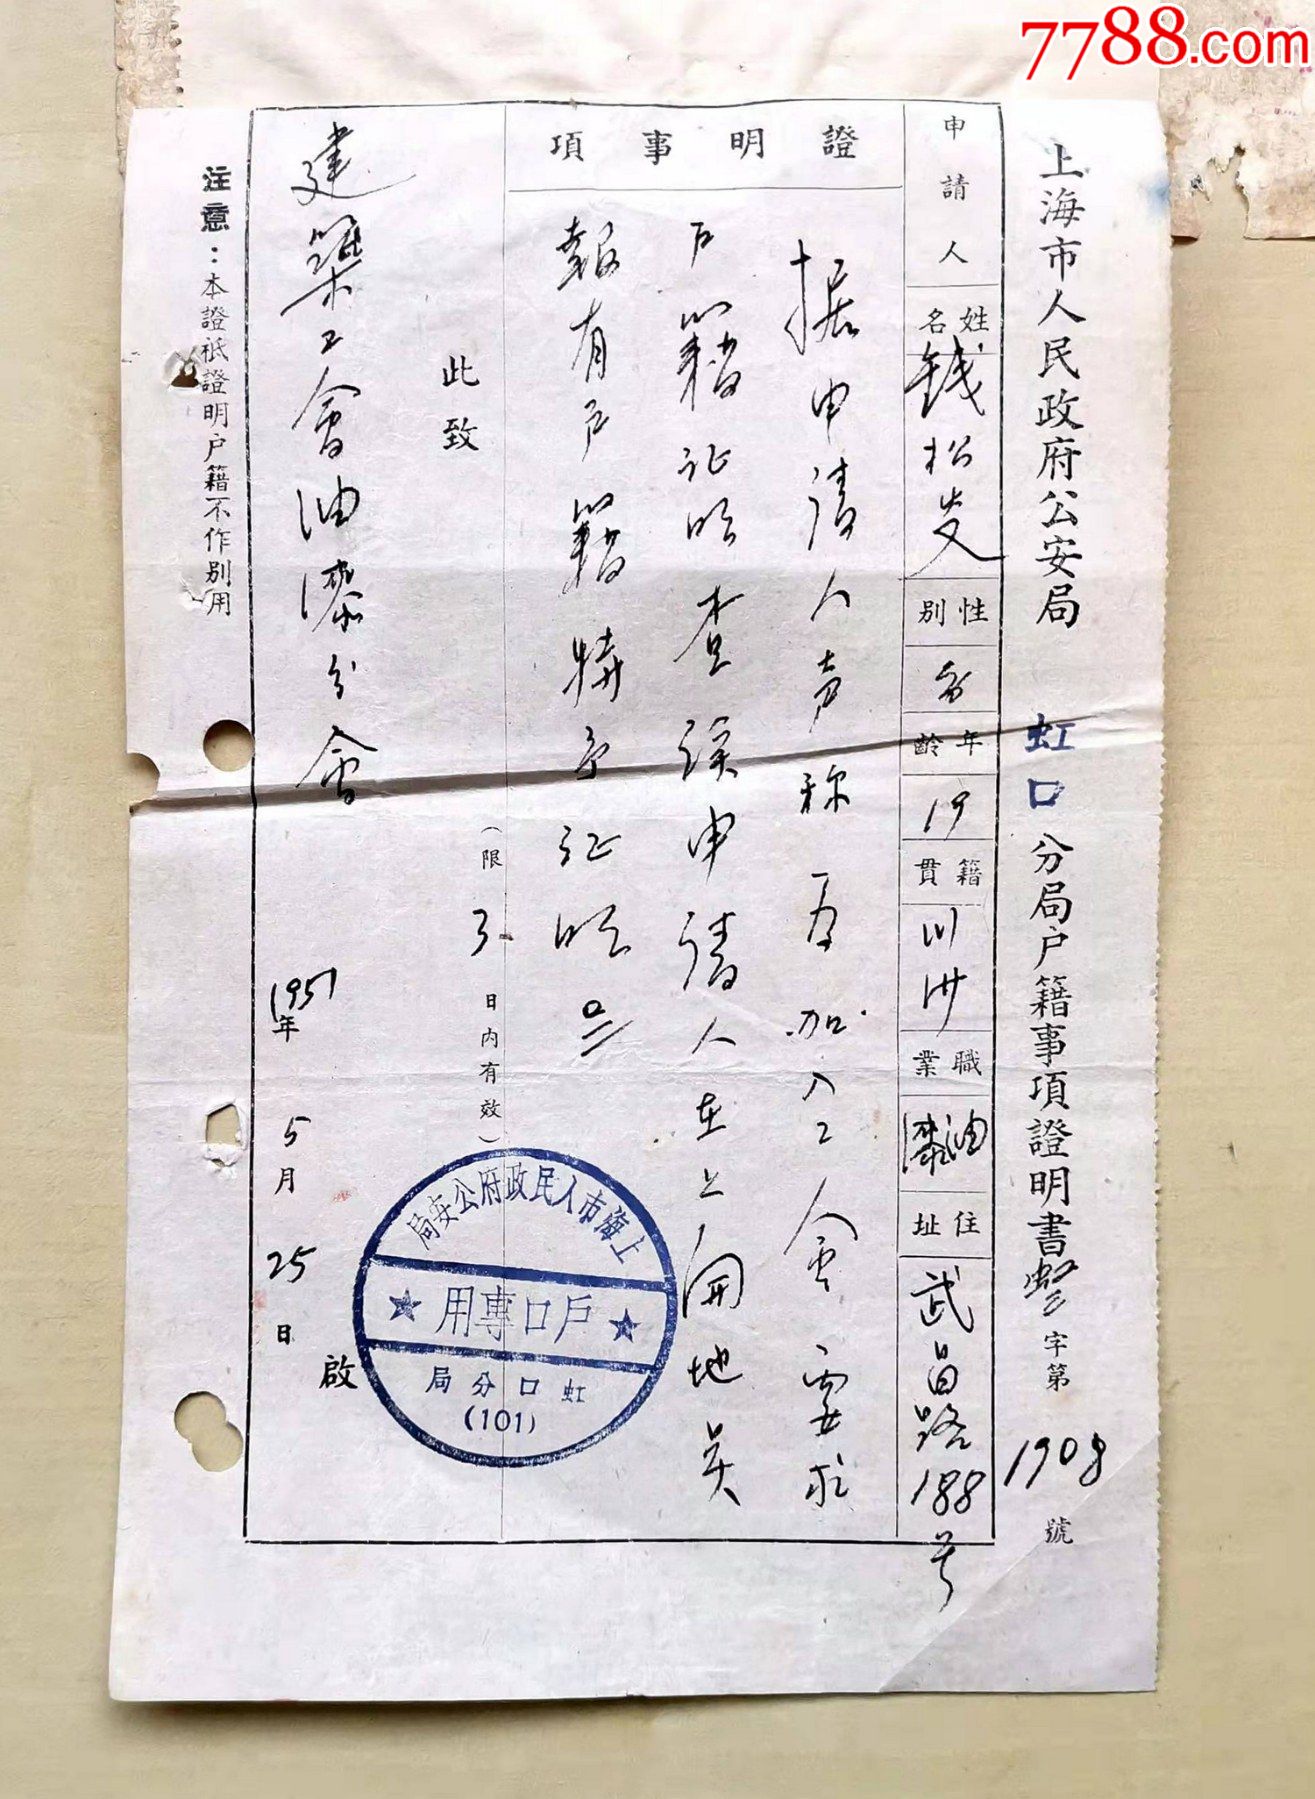 7788.com
上海市人民政府公安局 虹口 分局户籍事項證明書 字第 1908 號
申請人
姓名
錢松炎
性別
男
年齡
19
籍貫
川沙
職業
油漆
住址
武昌路188号
證明事項
据申請人声称 为加入工会要求
户籍证明查該申請人在上開地央
報有户籍特予证明
(限 3 日内有效)
此致
建築工會油漆分會
1951年 5月 25日
啟
注意：本證祇證明户籍不作别用
上海市人民政府公安局
★ 戶口專用 ★
虹口分局
(101)